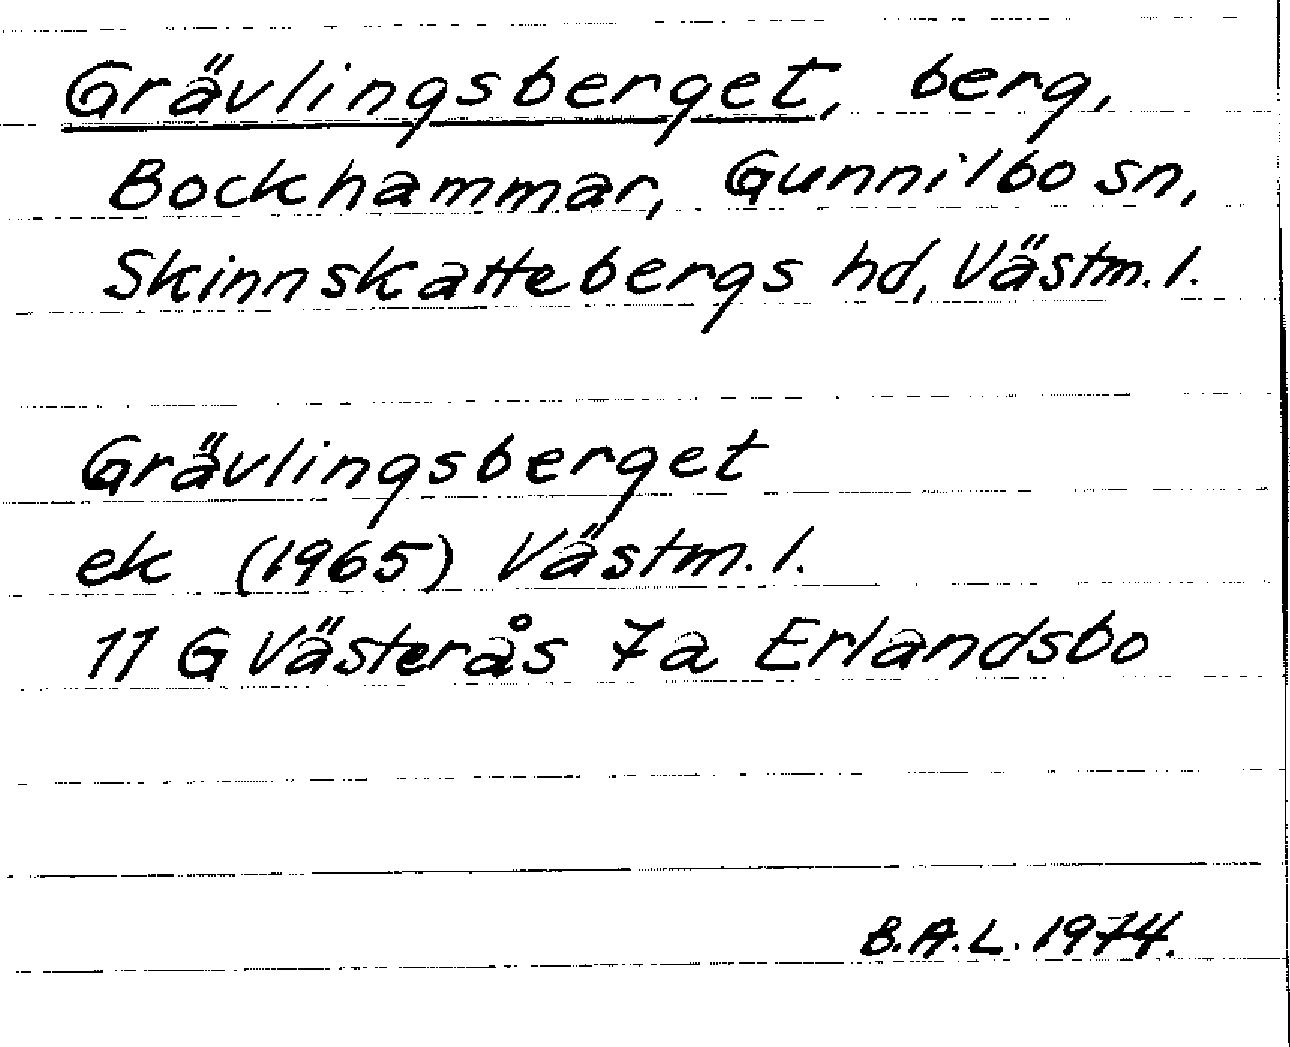 Grävlingsberget, berg,
Bockhammar, Gunnilbo sn,
Skinnskattebergs hd, Västm. l.
Grävlingsberget
ek (1965) Västm. l.
11 G Västerås 7a Erlandsbo
B.A.L. 1974.